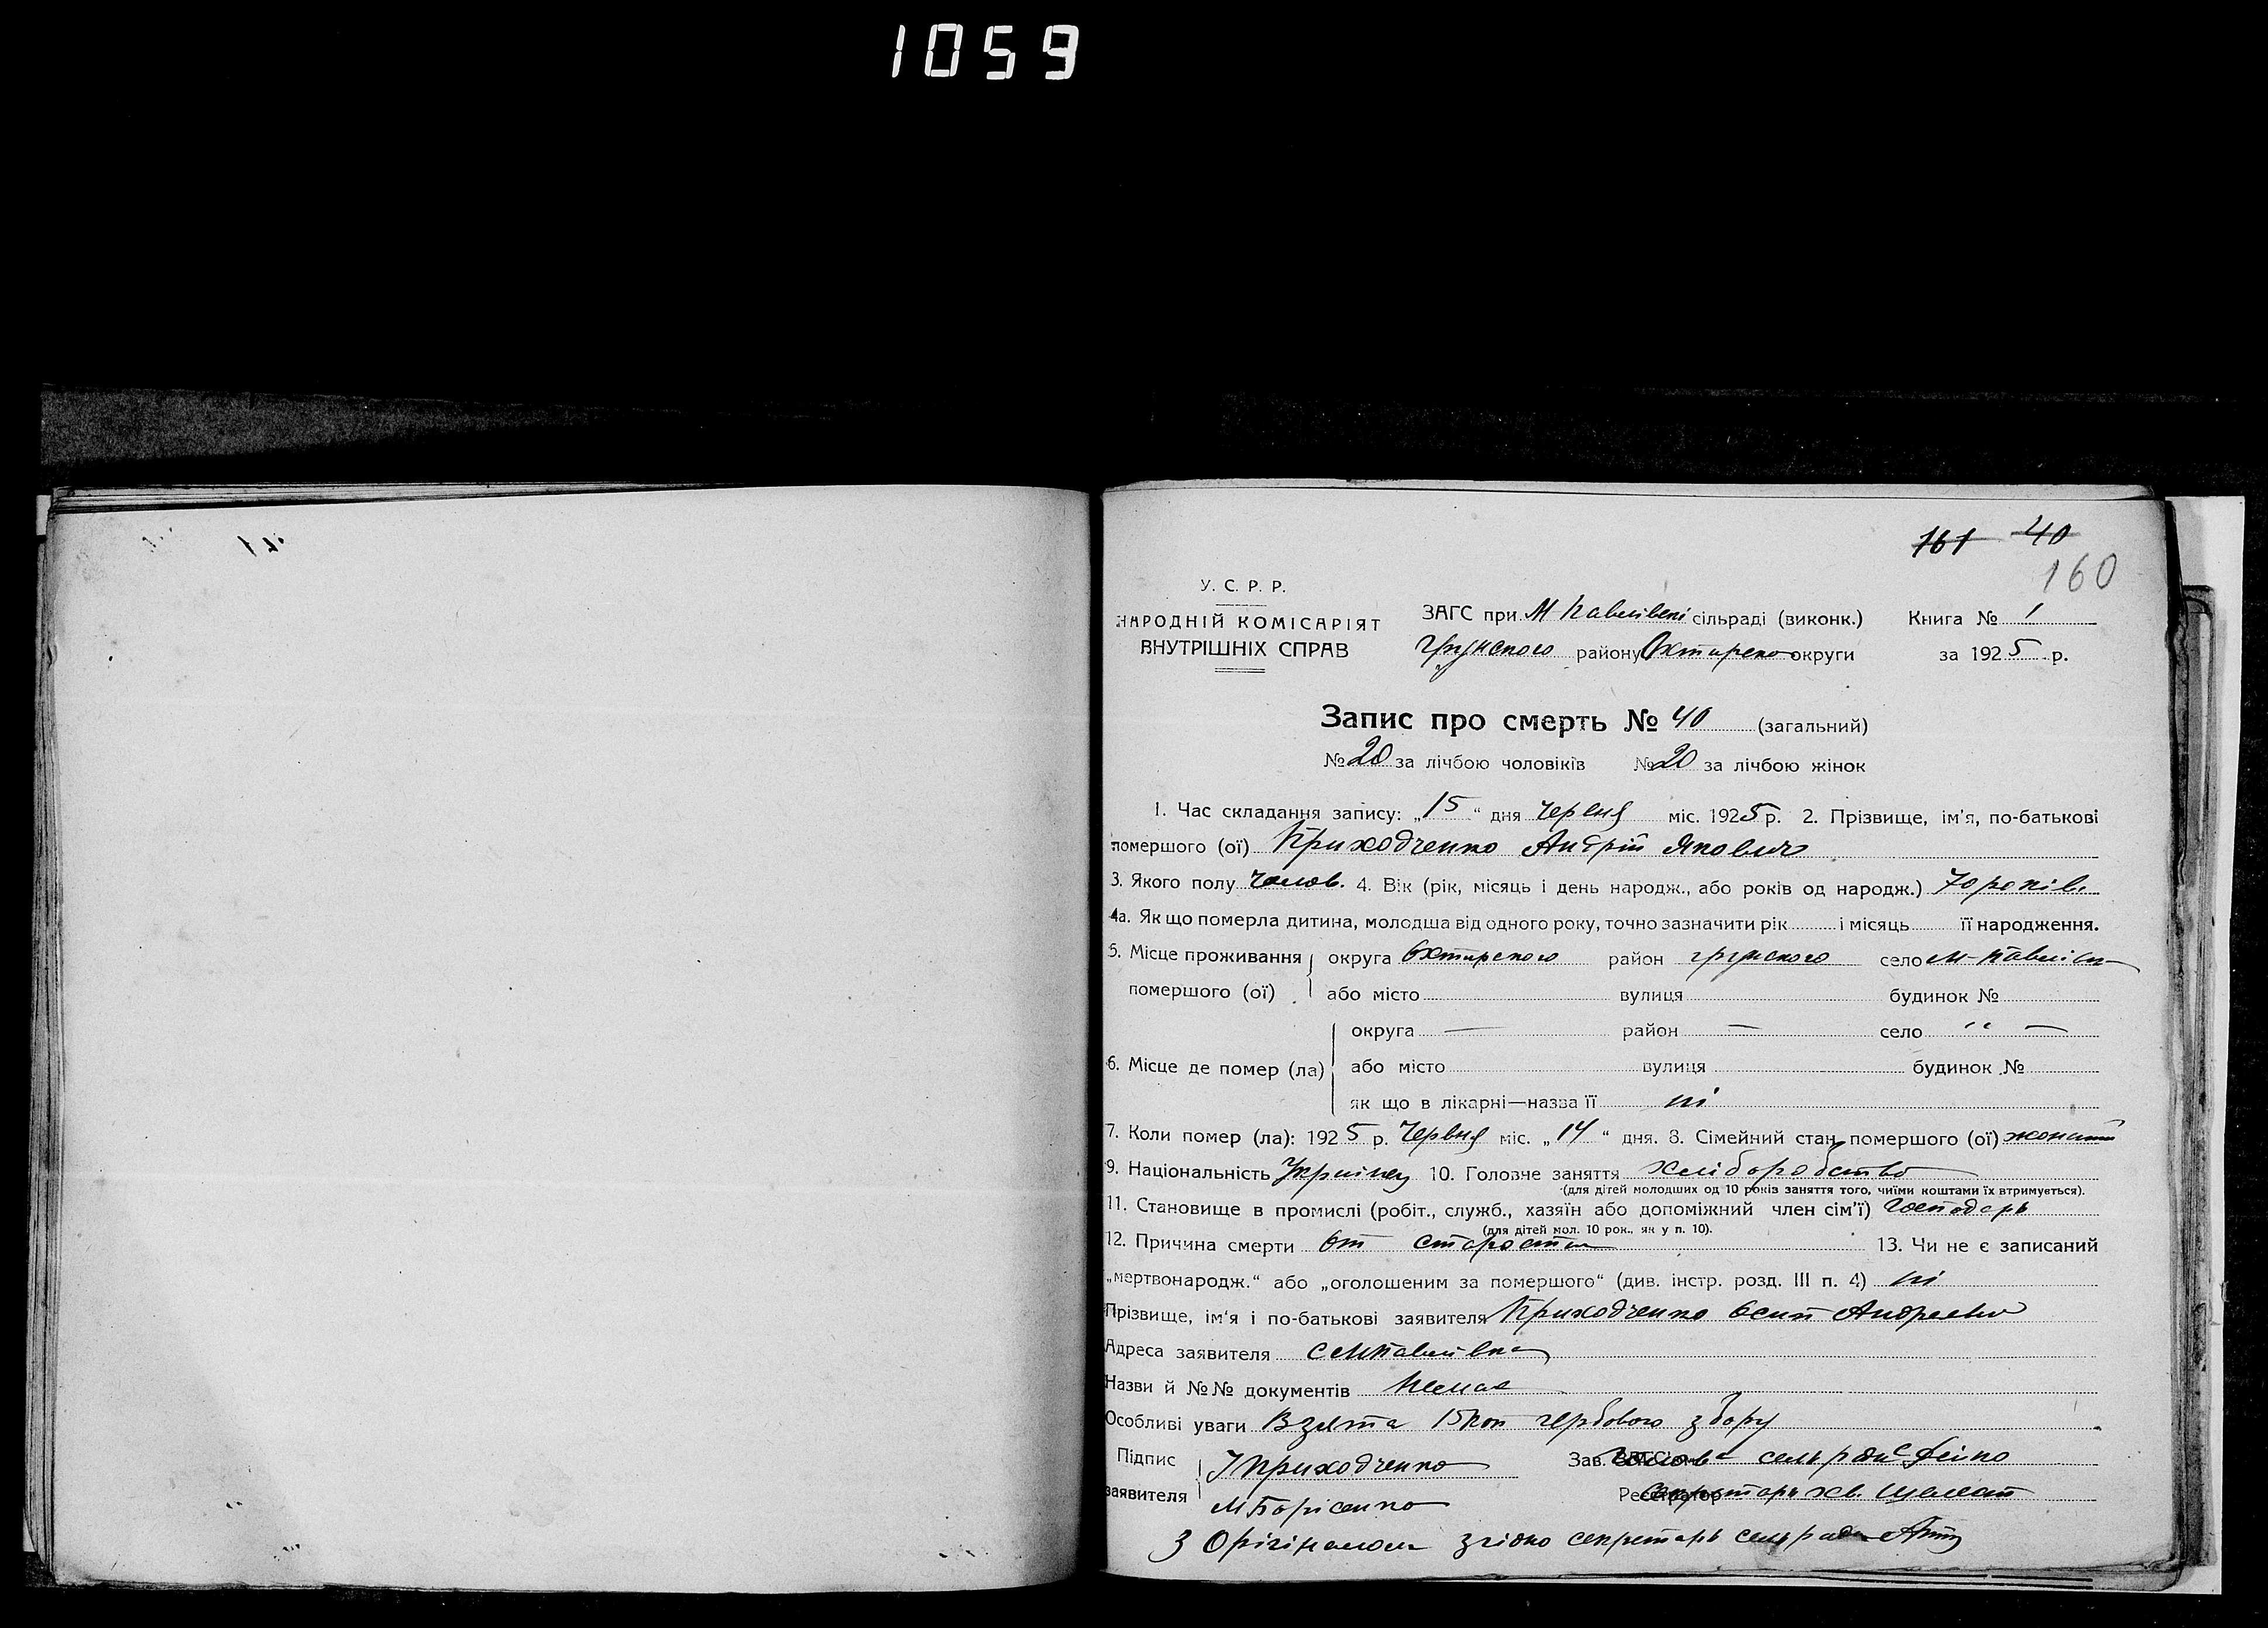 1059
161 40
160
У. С. Р. Р.
НАРОДНІЙ КОМІСАРІЯТ
ВНУТРІШНІХ СПРАВ
ЗАГС при М Павлівскі сільраді (виконк.) Книга № 1
Грунского району Охтирско округи за 1925 р.
Запис про смерть № 40 (загальний)
№ 20 за лічбою чоловіків № 20 за лічбою жінок
1. Час складання запису: „15“ дня Червня міс. 1925 р. 2. Прізвище, ім'я, по-батькові
помершого (ої) Приходченко Андрій Якович
3. Якого полу чолов. 4. Вік (рік, місяць і день народж., або років од народж.) 70 років.
4а. Як що померла дитина, молодша від одного року, точно зазначити рік і місяць її народження.
5. Місце проживання округа Охтирского район грунского село М-Павлівк
помершого (ої) або місто вулиця будинок №
округа — район — село “ —
6. Місце де помер (ла) або місто вулиця будинок №
як що в лікарні—назва її ні
7. Коли помер (ла): 1925 р. Червня міс. „14“ дня. 8. Сімейний стан помершого (ої) жонатий
9. Національність Українец 10. Головче заняття хліборобство
(для дітей молодших од 10 років заняття того, чиїми коштами їх втримується).
11. Становище в промислі (робіт., служб., хазяїн або допоміжний член сім'ї) Господарь
(для дітей мол. 10 рок., як у п. 10).
12. Причина смерти От старости 13. Чи не є записаний
„мертвонародж.“ або „оголошеним за помершого“ (див. інстр. розд. III п. 4) ні
Прізвище, ім'я і по-батькові заявителя Приходченко Осип Андреевич
Адреса заявителя с МПавлівка
Назви й №№ документів Немае
Особливі уваги Взята 15 коп гербового збору
Підпис Приходченко Зав. ЗАГС'ом Голова сельради
заявителя М Борисенко Реєстратор Секретарь
З Орігіналом згідно секретарь сельради